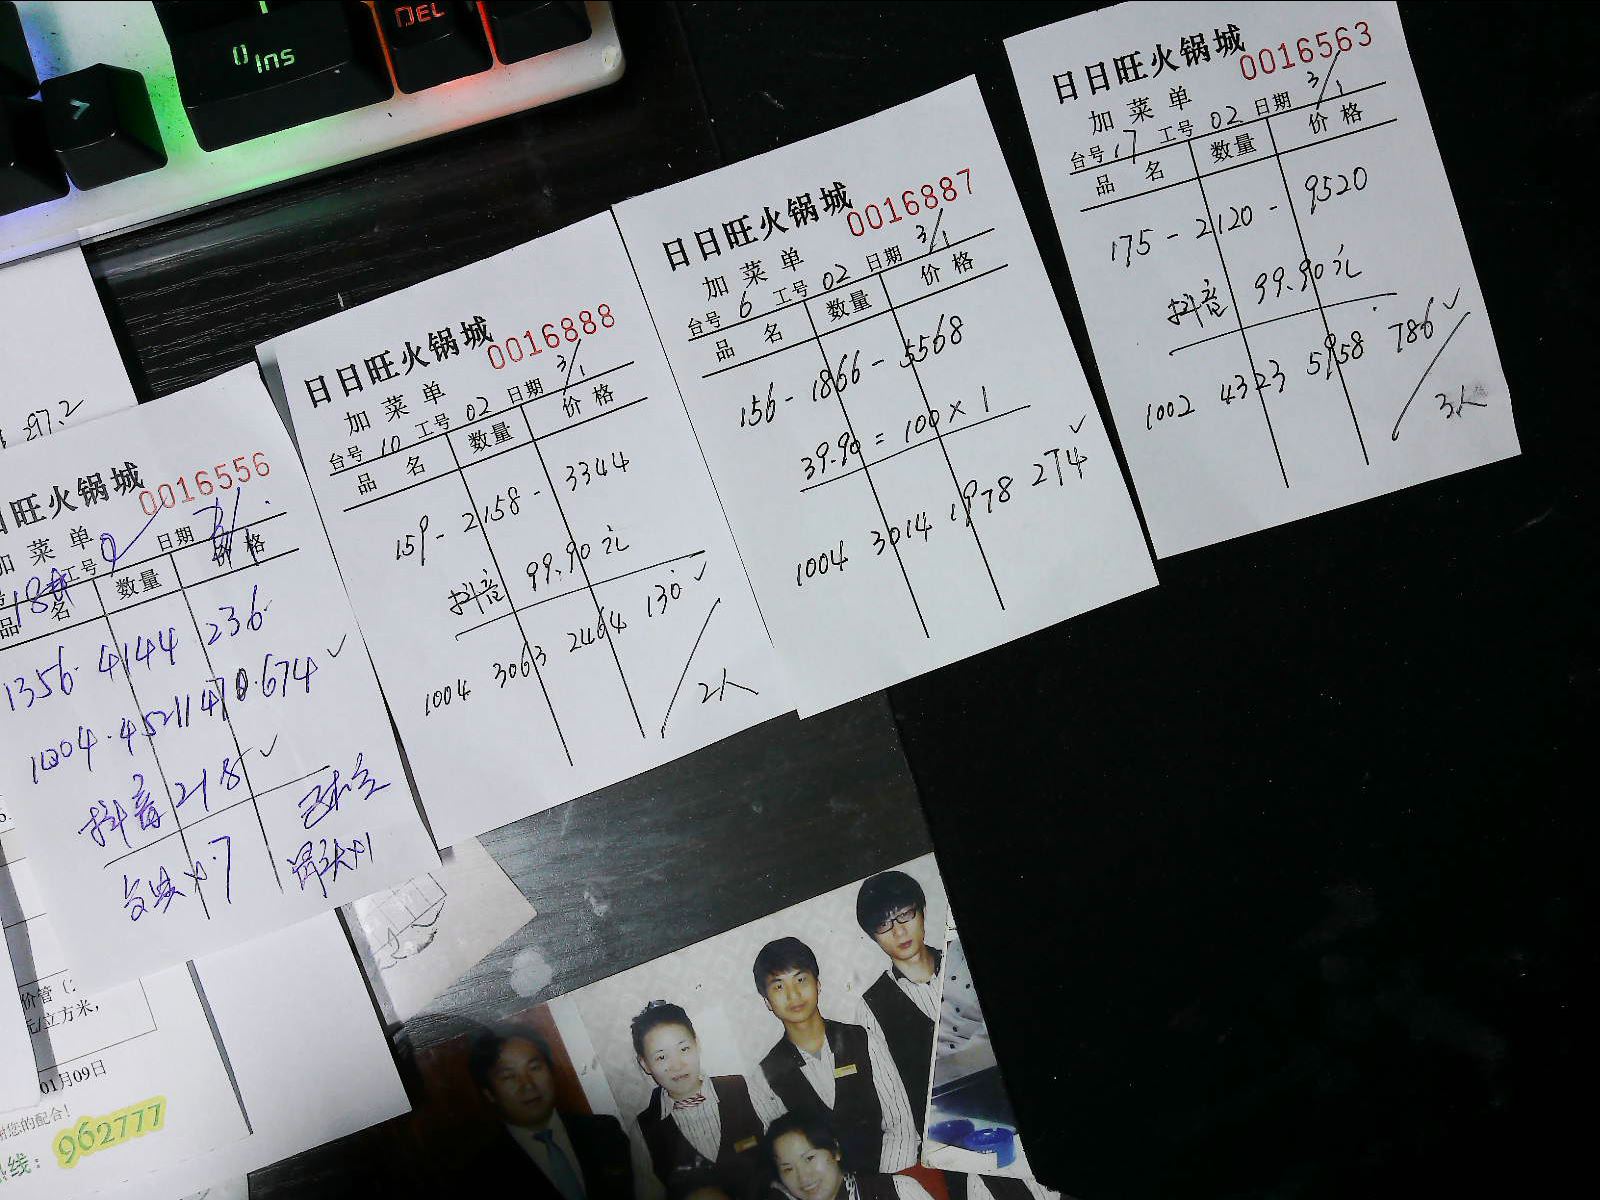 0 Ins
DEL
297.2
日旺火锅城 0016556
加菜单
工号 日期
品名 数量 价格
1356-4144.236
1004.4521 1470.674 ✓
抖音 218 ✓
日日旺火锅城 0016888
加菜单
台号 10 工号 02 日期 3/1
品名 数量 价格
159-2158-3344
抖音 99.90元
1004 3063 2464 130 ✓
2人
日日旺火锅城 0016887
加菜单
台号 6 工号 02 日期 3/1
品名 数量 价格
156-1866-5568
39.90=100×1
1004 3014 1978 274 ✓
日日旺火锅城 0016563
加菜单
台号 17 工号 02 日期 3/1
品名 数量 价格
175-2120-9520
抖音 99.90元
1002 4323 5958 786 ✓
3人
价管(
元/立方米,
01月09日
谢您的配合!
线: 962777